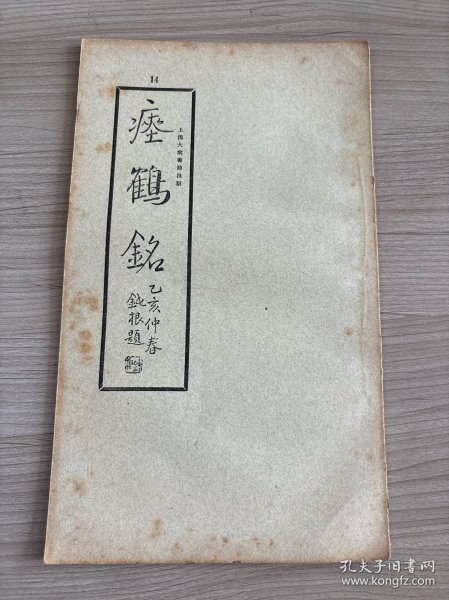 14
上海大眾書局出版
瘞鶴銘
乙亥仲春
鈍根題
孔夫子旧书网
www.kongfz.com